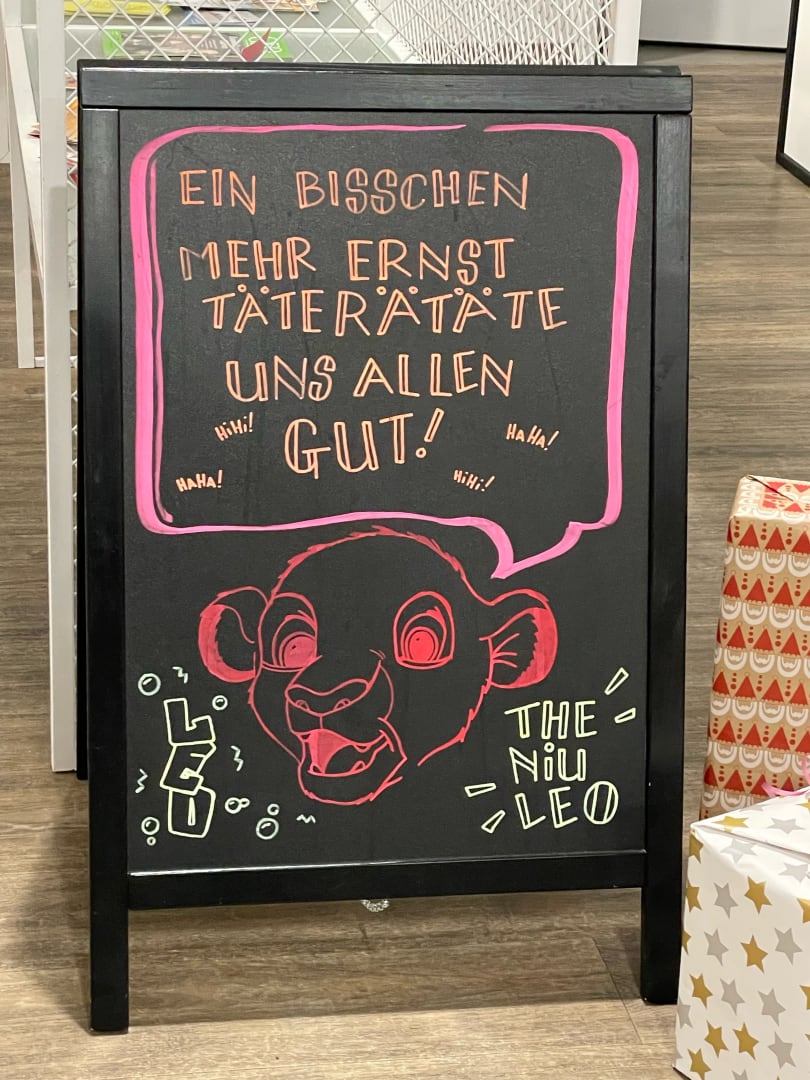 EIN BISSCHEN
MEHR ERNST
TÄTERÄTÄTE
UNS ALLEN
GUT!
HiHi!
HAHA!
HAHA!
HiHi!
LEO
THE
NiU
LEO